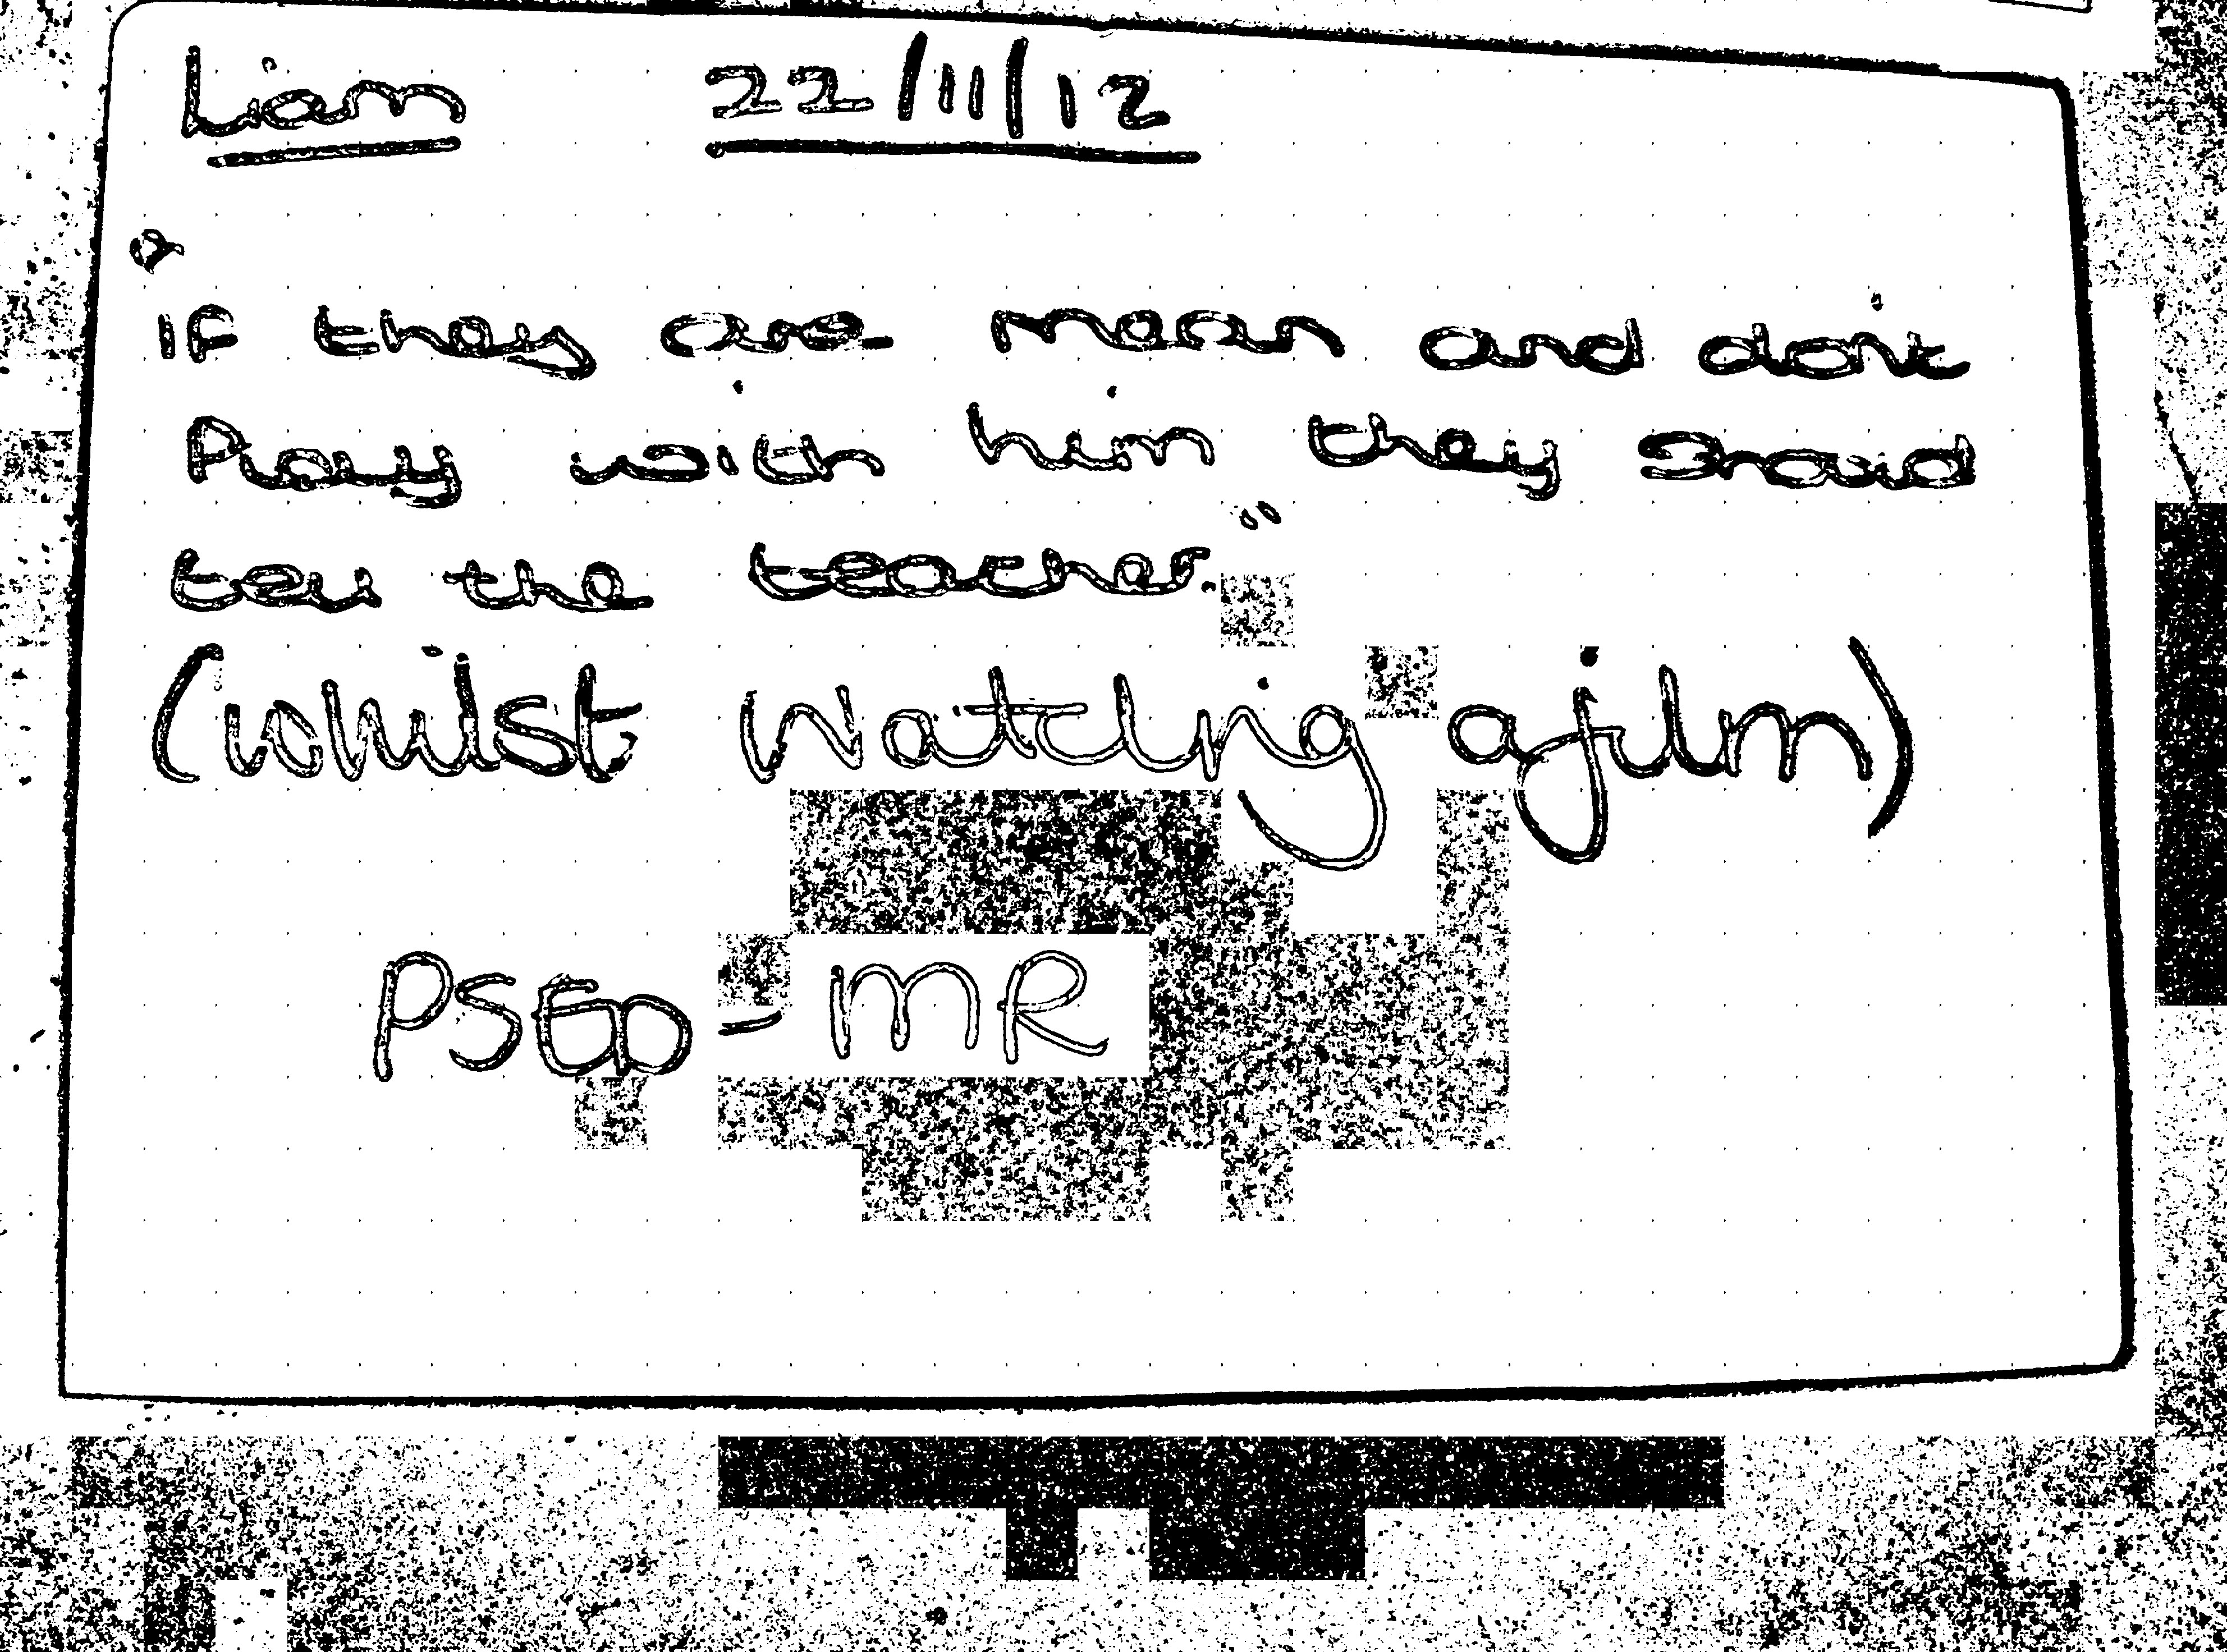 Liam 22/11/12
"if they are mean and don't
Play with him they should
tell the teacher."
(whilst watching a film)
PSED - MR